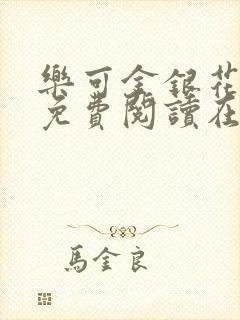 樂可金銀花
免費閱讀在
馬金良